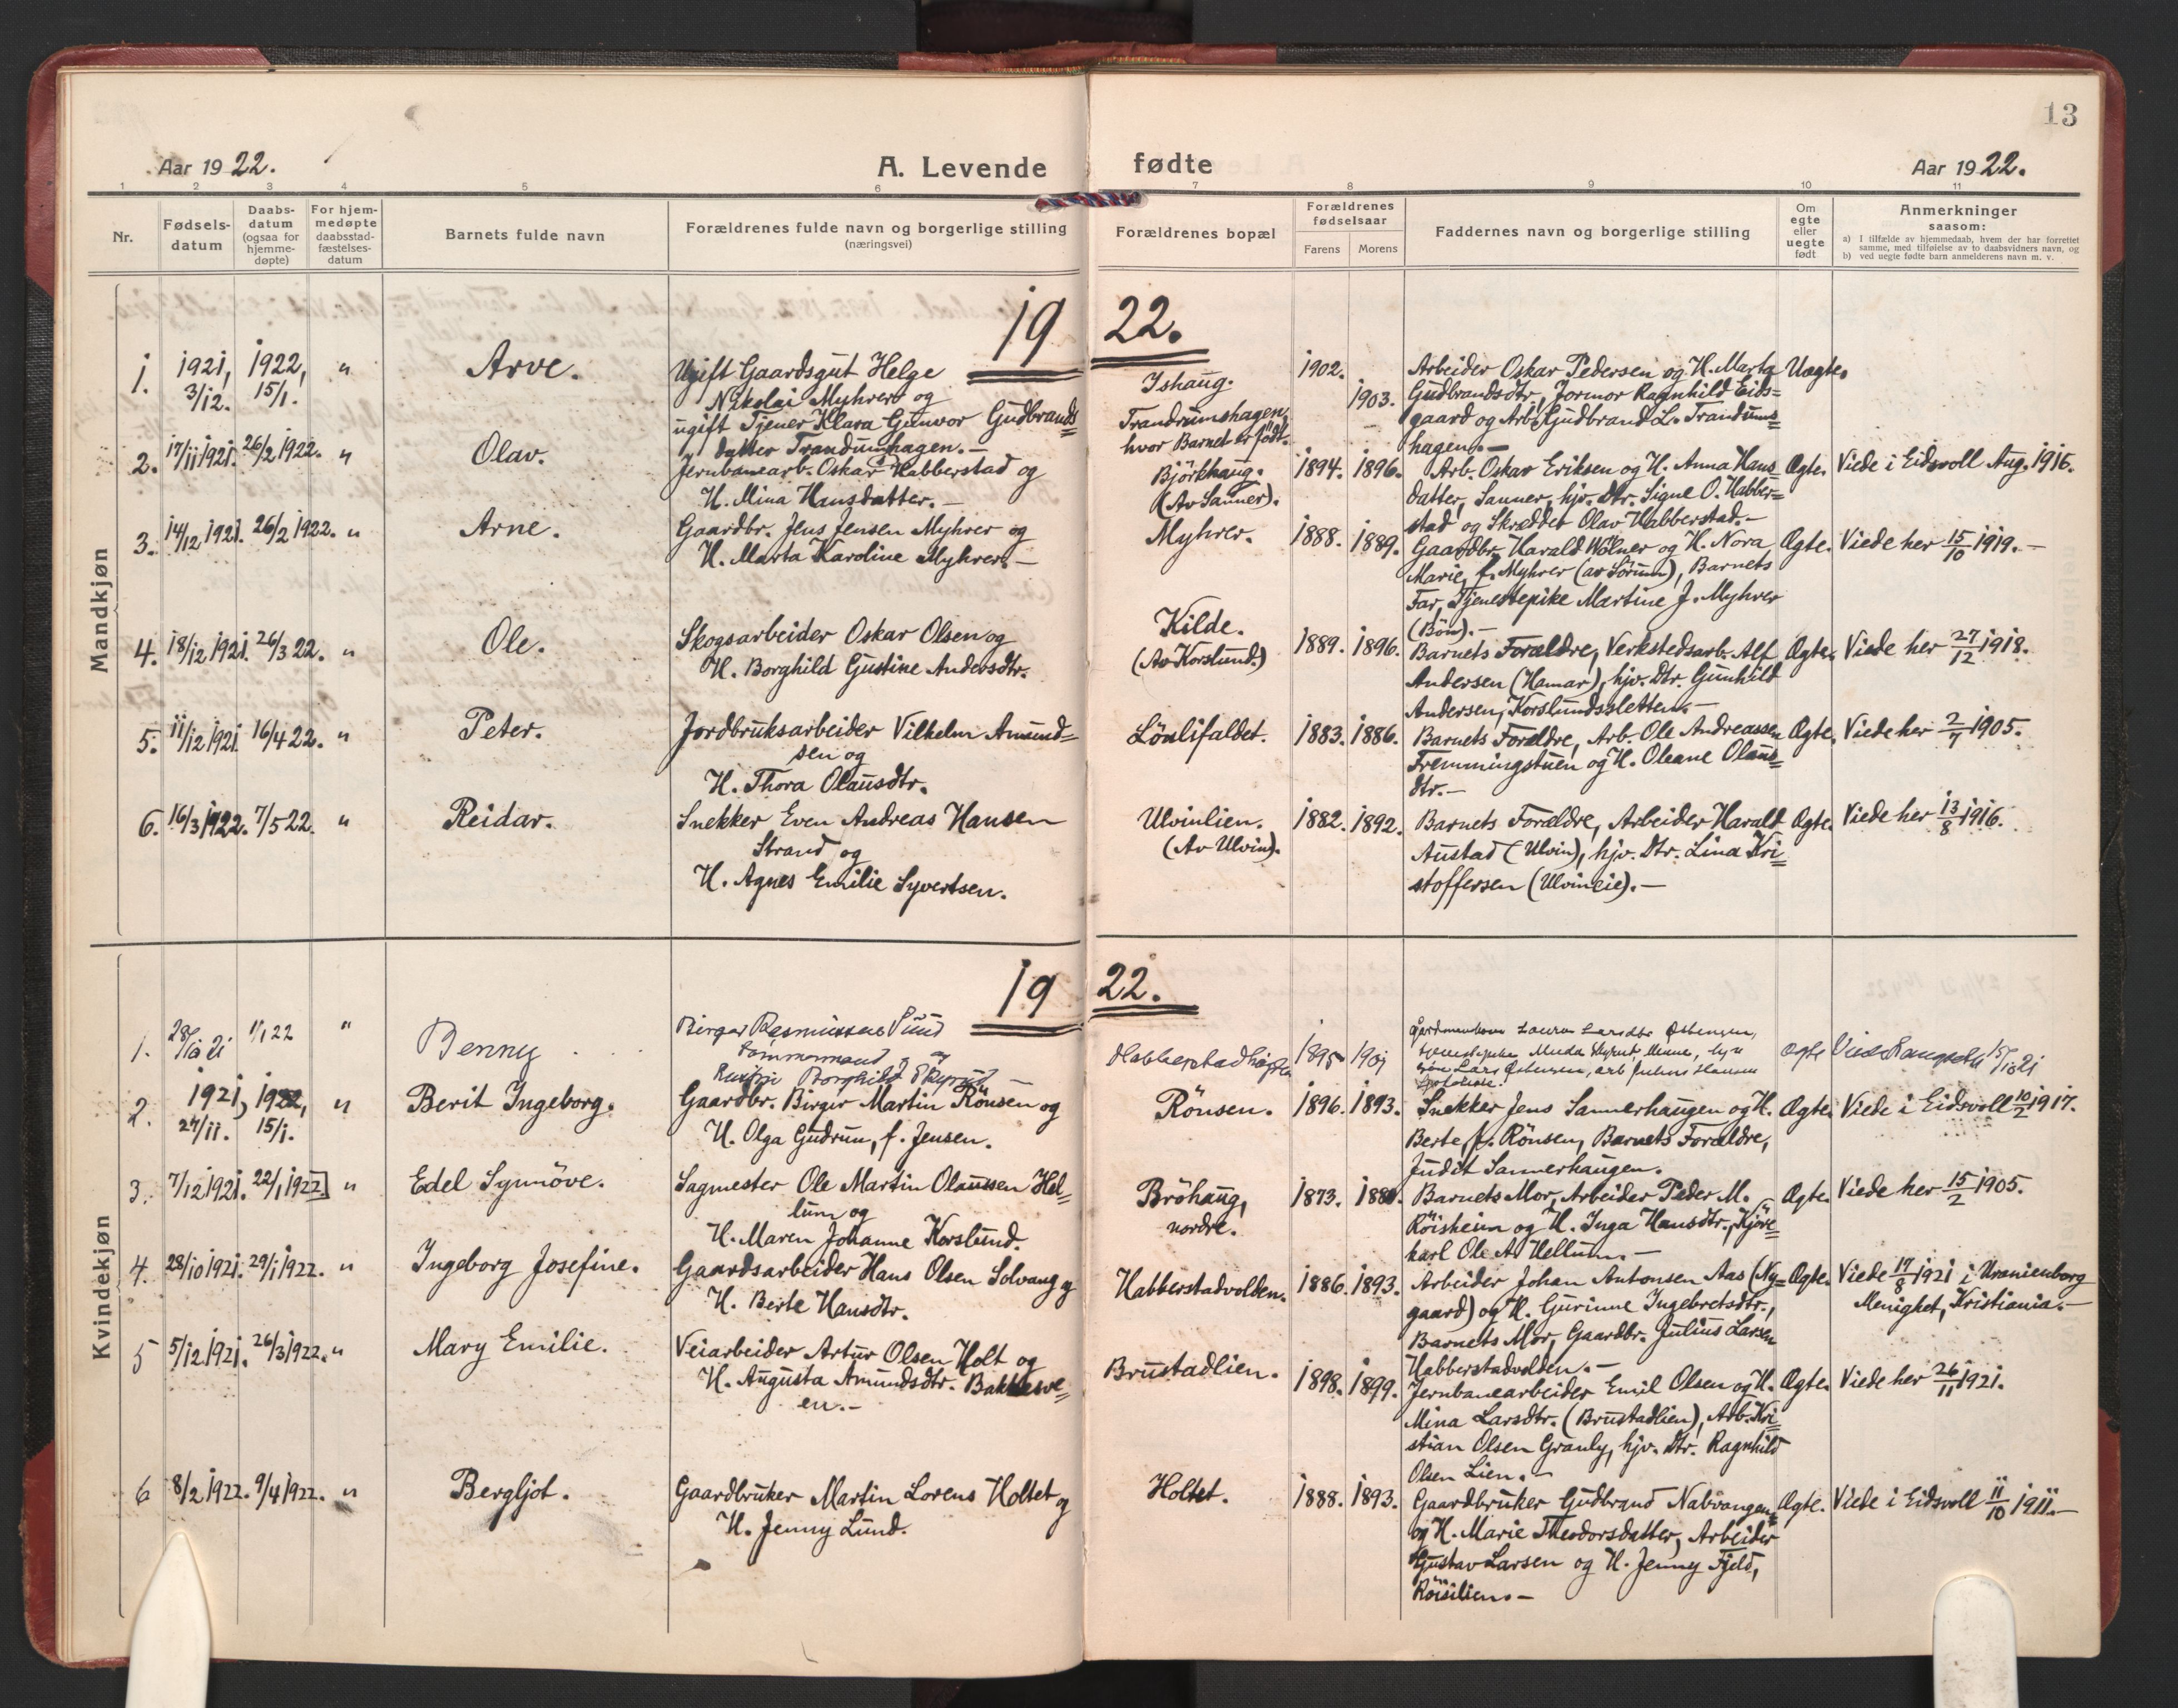 13
Aar 1922.
A. Levende fødte
Aar 1922.
1 2 3 4 5 6 7 8 9 10 11
Nr.
Fødsels-
datum
Daabs-
datum
(ogsaa for
hjemme-
døpte)
For hjem-
medøpte
daabsstad-
fæstelses-
datum
Barnets fulde navn
Forældrenes fulde navn og borgerlige stilling
(næringsvei)
Forældrenes bopæl
Forældrenes
fødselsaar
Farens Morens
Faddernes navn og borgerlige stilling
Om
egte
eller
uegte
født
Anmerkninger
saasom:
a) I tilfælde av hjemmedaab, hvem der har forrettet
samme, med tilføielse av to daabsvidners navn, og
b) ved uegte fødte barn anmelderens navn m. v.
Mandkjøn
1922.
1. 1921, 3/12. 1922, 15/1. " Arve.
Ugift Gaardsgut Helge
Nikolai Myhrer og
ugift Tjener Klara Gunvor Gudbrands=
datter Trandumhagen.-
Ishaug.
Trandrumshagen,
hvor Barnet er født.
1902.
1903.
Arbeider Oskar Pedersen og H. Marta
Gudbrandsdtr, Jormor Ragnhild Eids=
gaard og Arb. Gudbrand L. Trandums=
hagen.-
Uægte.
2. 17/11 1921. 26/2 1922. " Olav.
Jernbanearb. Oskar Habberstad og
H. Mina Hansdatter.-
Björkhaug.
(Av Sanner).
1894. 1896.
Arb. Oskar Eriksen og H. Anna Hans
datter, Sanner, hjv. Dtr. Signe O. Habber=
stad og Skrædder Olav Habberstad.-
Ægte. Viede i Eidsvoll Aug. 1915.
3. 14/12 1921. 26/2 1922. " Arne.
Gaardbr. Jens Jensen Myhrer og
H. Marta Karoline Myhrer.-
Myhrer.
1888. 1889.
Gaardbr. Harald Wölner og H. Nora
Marie, f. Myhrer (av Sörum), Barnets
Far, Tjenestepike Martine J. Myhrer
(Böm).-
Ægte. Viede her 15/10 1919.-
4. 18/12 1921. 26/3 22. " Ole.
Skogsarbeider Oskar Olsen og
H. Borghild Gustine Andersdtr.
Kilde.
(Av Korslund.)
1889. 1896.
Barnets Forældre, Verkstedsarb. Alf
Andersen (Hamar), hjv. Dtr. Gunhild
Andersen, Korslundssletten.-
Ægte. Viede her 27/12 1918.
5. 11/12 1921. 16/4 22. " Peter.
Jordbruksarbeider Vilhelm Amund=
sen og
H. Thora Olausdtr.
Lönlifaldet.
1883. 1886.
Barnets Forældre, Arb. Ole Andreassen
Fremmingstuen og H. Oleane Olaus=
dtr.-
Ægte. Viede her 2/7 1905.
6. 16/3 1922. 7/5 22. " Reidar.
Snekker Even Andreas Hansen
Strand og
H. Agnes Emilie Syvertsen.
Ulvinlien.
(Av Ulvin).
1882. 1892.
Barnets Forældre, Arbeider Harald
Austad (Ulvin), hjv. Dtr. Lina Kri=
stoffersen (Ulvineie).-
Ægte. Viede her 13/8 1916.
Kvindekjøn
1922.
1. 28/10 21 1/1 22 " Benny
Birger Rasmussen Sund
Tömmermand og
Borghild
Habberstadhögda
1895 1901
Ægte
2. 1921, 27/11. 1922, 15/1. " Berit Ingeborg.
Gaardbr. Birger Martin Rönsen og
H. Olga Gudrun, f. Jensen.
Rönsen.
1896. 1893.
Snekker Jens Sannerhaugen og H.
Berte, f. Rönsen, Barnets Forældre,
Judit Sannerhaugen.
Ægte. Viede i Eidsvoll 10/2 1917.
3. 7/12 1921. 22/1 1922 " Edel Synnöve.
Sagmester Ole Martin Olaussen Hel=
lum og
H. Maren Johanne Korslund.
Bröhaug,
nordre.
1873.
Barnets Mor, Arbeider Peder M.
Röisheim og H. Inga Hansdtr., Kjöre=
karl Ole A. Hellum.-
Ægte. Viede her 15/2 1905.
4. 28/10 1921. 29/1 1922. " Ingeborg Josefine.
Gaardsarbeider Hans Olsen Solvang og
H. Berte Hansdtr.
Habberstadvolden.
1886. 1893.
Arbeider Johan Antonsen Aas (Ny=
gaard) og H. Gurinne Ingebretsdtr.,
Barnets Mor, Gaardbr. Julius Larsen
Habberstadvolden.-
Ægte. Viede 17/8 1921 i Uranienborg
Menighet, Kristiania.-
5 5/12 1921. 26/3 1922. " Mary Emilie.
Veiarbeider Artur Olsen Holt og
H. Augusta Amundsdtr. Bakkesve=
en.-
Brustadlien.
1898. 1899.
Jernbanearbeider Emil Olsen og H.
Mina Larsdtr. (Brustadlien), Arb. Kri=
stian Olsen Granly, hjv. Dtr. Ragnhild
Olsen Lien.-
Ægte. Viede her 26/11 1921.
6 8/2 1922. 9/4 1922. " Bergljot.
Gaardbruker Martin Lorens Holtet og
H. Jenny Lund.
Holtet.
1888. 1893.
Gaardbruker Gudbrand Nabvangen
og H. Marie Theodorsdatter, Arbeider
Gustav Larsen og H. Jenny Fjeld,
Röisilien.-
Ægte. Viede i Eidsvoll 11/10 1911.-